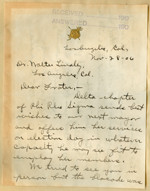 Los Angeles, Cal.
Nov. 28-06
Dr. Walter Lindley,
Los Angeles Cal.
Dear Doctor:-
Delta chapter
of Phi Rho Sigma sends best
wishes to our next mayor
and offers him her services
on election day in whatever
capacity he may see fit to
employ her members.
We tried to see you in
person but the blockade was